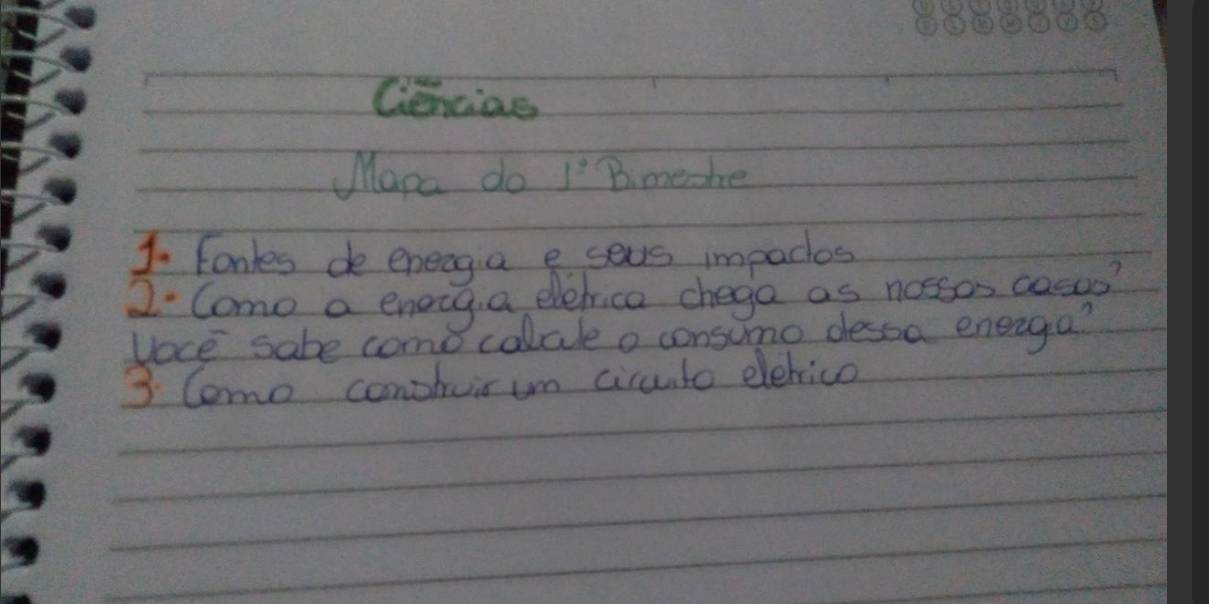 Ciências
Mapa do 1º Bimestre
1. Fontes de energia e seus impactos
2. Como a energia elétrica chega as nossas casas?
Você sabe como calcule o consumo dessa energa?
3. Como construir um circuito eletrico